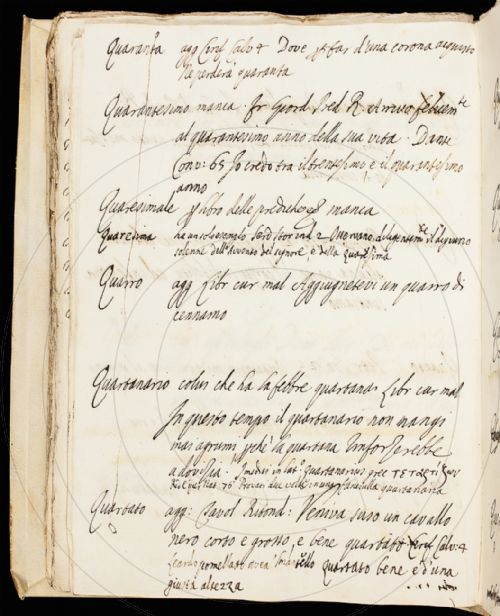 Quaranta agg Cref Calv 4 Dove p far d'una corona acquisto
Ne perderà quaranta
Quarantesimo manca. Fr Giord Pred R Arrivò felicem.te
al quarantesimo anno della sua vita. Dante
Conv: 65 Io credo tra il trentesimo, e il quarantesimo
anno
Quaresimale p libro delle prediche manca
Quaresima ha un solo esempio Serd Stor ind 2 Osservano diligentem.te il digiuno
solenne dell'Avvento del signore e della quaresima
Quarro agg Libr cur mal Aggiugnetevi un quarro di
cennamo
Quartanario colui che ha la febbre quartana. Libr cur mal
In questo tempo il quartanario non mangi
mai agrumi pchè la quartana rinforzerebbe
a dovizia. quartanarius
due volte quartanaria
Quartato agg: Tavol Ritond: Veniva suso un cavallo
nero corto e grosso, e bene quartato Cref Calv: 4
pomellato avea quartato bene e d'una
giusta altezza